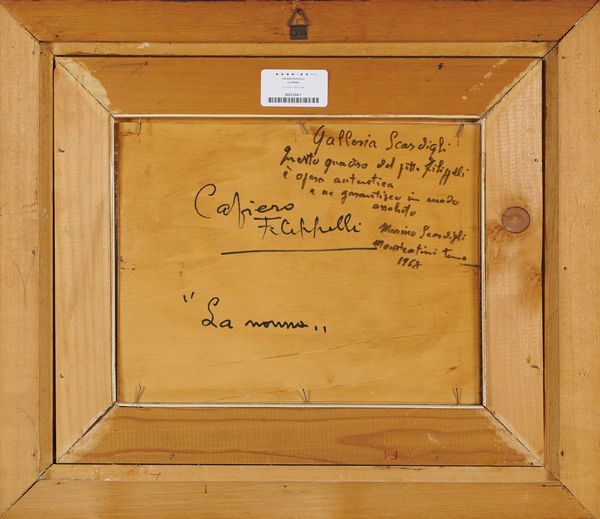 Galleria Scardigli
Questo quadro del pitt. Filippelli
è opera autentica
e ne garantisco in modo
assoluto
Cafiero
Filippelli
Marino Scardigli
Montecatini Terme
1968
"La nonna"